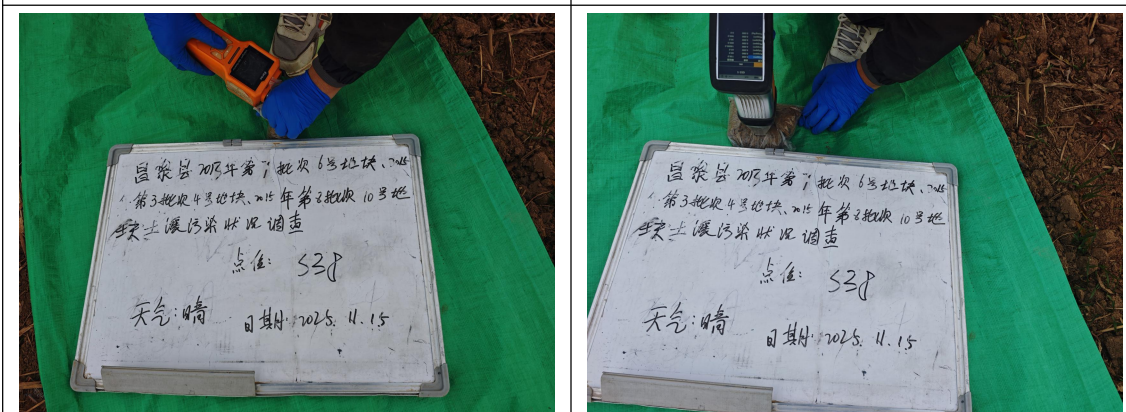 昌黎县2015年第7批次6号地块、2015
年第3批次4号地块、2015年第8批次10号地
块土壤污染状况调查
点位: S38
天气:晴 日期: 2025.11.15
昌黎县2015年第7批次6号地块、2015
年第3批次4号地块、2015年第8批次10号地
块土壤污染状况调查
点位: S38
天气:晴 日期: 2025.11.15